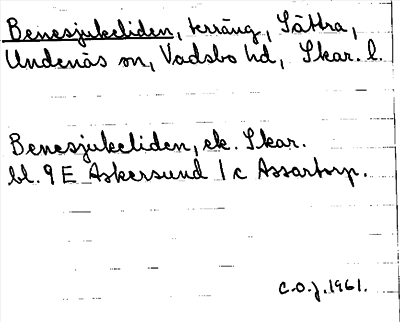 Benesjukeliden, terräng, Sättra,
Undenäs sn, Vadsbo hd, Skar. l.
Benesjukeliden, ek. Skar.
bl. 9 E Askersund 1 c Assartorp.
C.O.J. 1961.